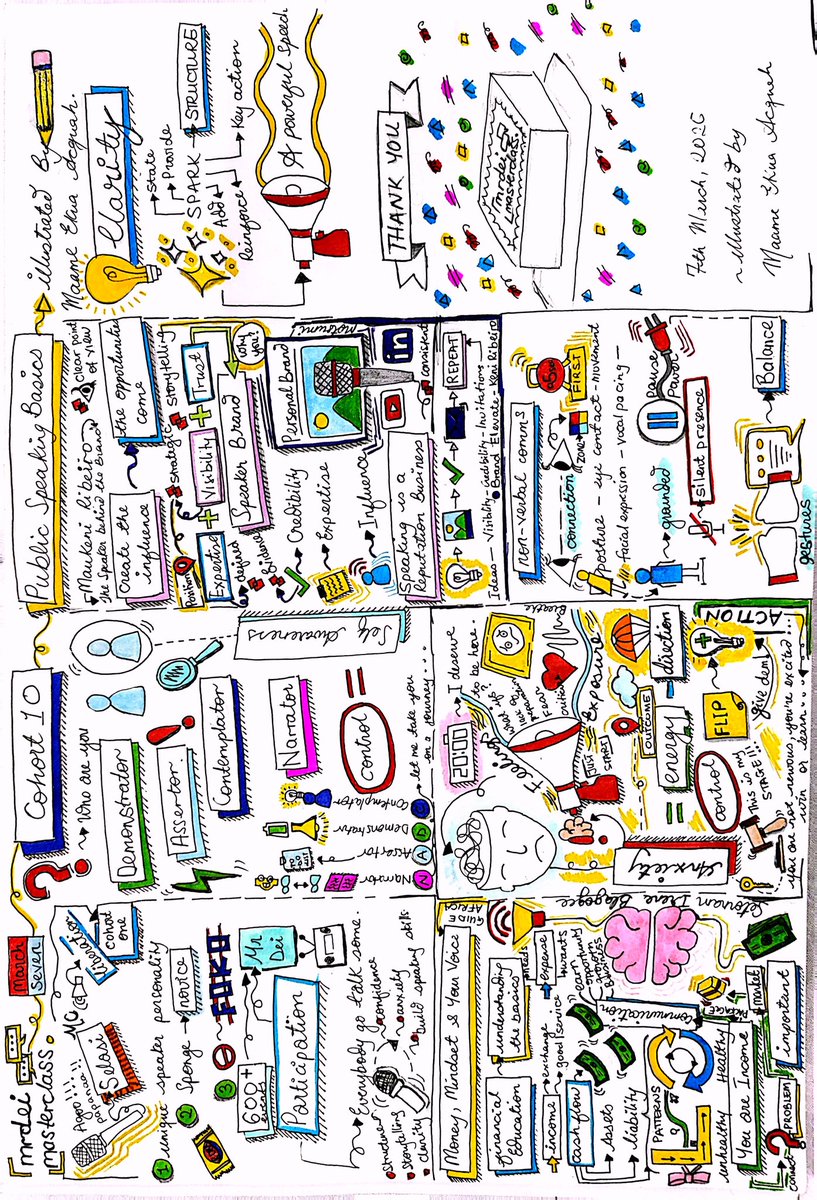 mrdei
masterclass.
March
Seven
Agoo!!!
papanaa
Selasi
MC
Liberation
cohort
one
1 unique speaker personality
2 Sponge
novice
3
FOKO
600+
Mr
Dei
Participation
Everybody go talk some.
structure
storytelling
clarity
confidence
anxiety
build speaking skill
Cohort 10
Who are you
Demonstrator
Assertor
Contemplator
Narrator
Self Awareness
control
N Narrator
A Assertor
TO DO
LIST
D Demonstrator
C Contemplator
let me take you
on a journey...
Public Speaking Basics
Maukeni Ribeiro
The Speaker behind the Brand
Clear point
of view
Create the
influence
the opportunities
come
Position
strategic
storytelling
Expertise + Visibility + Trust
Speaker Brand
why
you?
Credibility
Expertise
Influence
Personal Brand
in
consistent
Speaking is a
Reputation Business
REPEAT
Ideas - Visibility - credibility - Invitations
Brand Elevate - Keni Ribeiro
illustrated By
Maame Ekua Acquah.
Clarity
State
Provide
SPARK STRUCTURE
Add
Reinforce
Key action
A powerful Speech
Money, Mindset & Your Voice
GUIDE
AFRICA
Financial
Education
understanding
the basics
needs
income
expense
wants
exchange
good/service
cashflow
Assets
liability
earn
opportunity
grow
business
Communication
Setornam Irene Blagogee
PATTERNS
unhealthy
Healthy
PACKAGE
market
You are Income
connect
PROBLEM
important
20:00
I deserve
to be here.
Feelings
what if?
Fear
Breathe
Exposure
JUST
START
Anxiety
OUTCOME
control = energy - direction
This is my
STAGE!!!
FLIP
give dem
ACTION
you are not nervous, you're excited...
win or learn...
non-verbal comms
connection
ZONE
FIRST
posture - eye contact - movement
Facial expression - vocal pacing -
grounded
Pause
Power
silent presence
gestures
Balance
THANK YOU
mrdei
masterclass.
7th March, 2026
~illustrated by
Maame Ekua Acquah